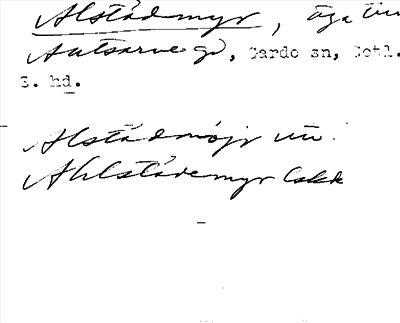 Alstädmyr, äga till
Autsarve gd, Gardo sn, Gotl.
S. hd.
Alstädmöjr
Ahlstädemyr Cskk